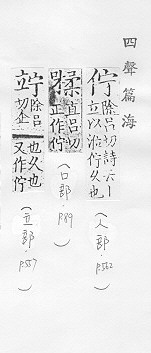 四聲篇海
佇
除呂切詩云丨
立以泣佇久也
(人部.p562)
直呂切
正作佇
(口部.p89)
竚
除呂切企
也久也又作佇
(立部.p557)